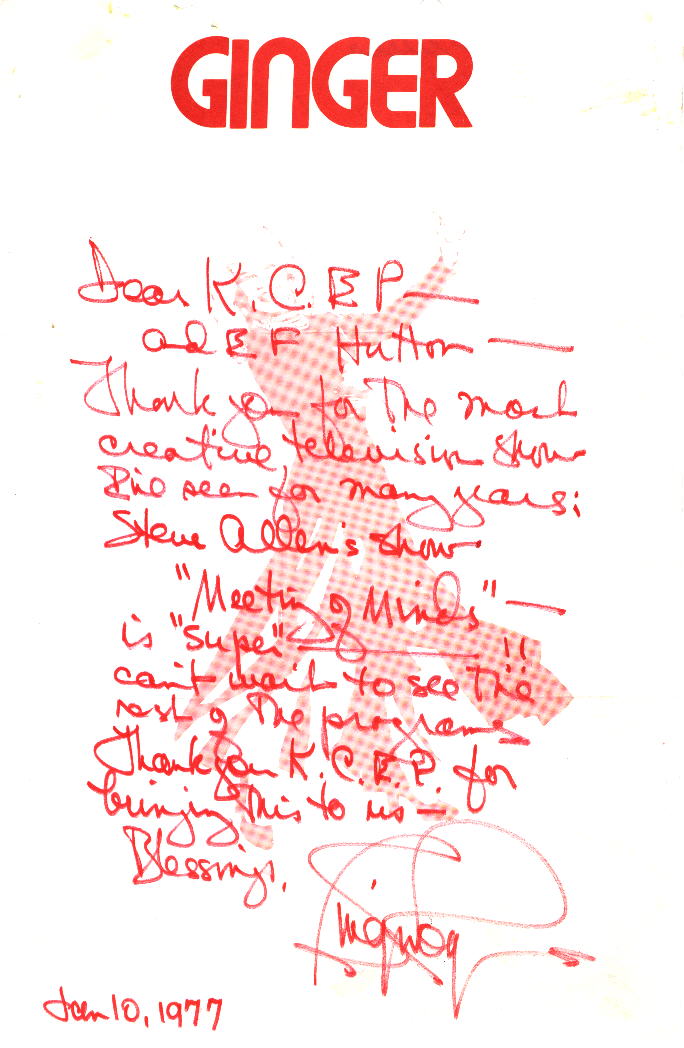 GINGER
Dear K.C.E P—
and E F Hutton —
Thank you for the most
creative television show
I've seen for many years:
Steve Allen's show
"Meeting of Minds" —
is "super" !!
can't wait to see the
rest of the programs
Thank you K.C.E.P. for
bringing this to us —
Blessings,
Jan 10, 1977